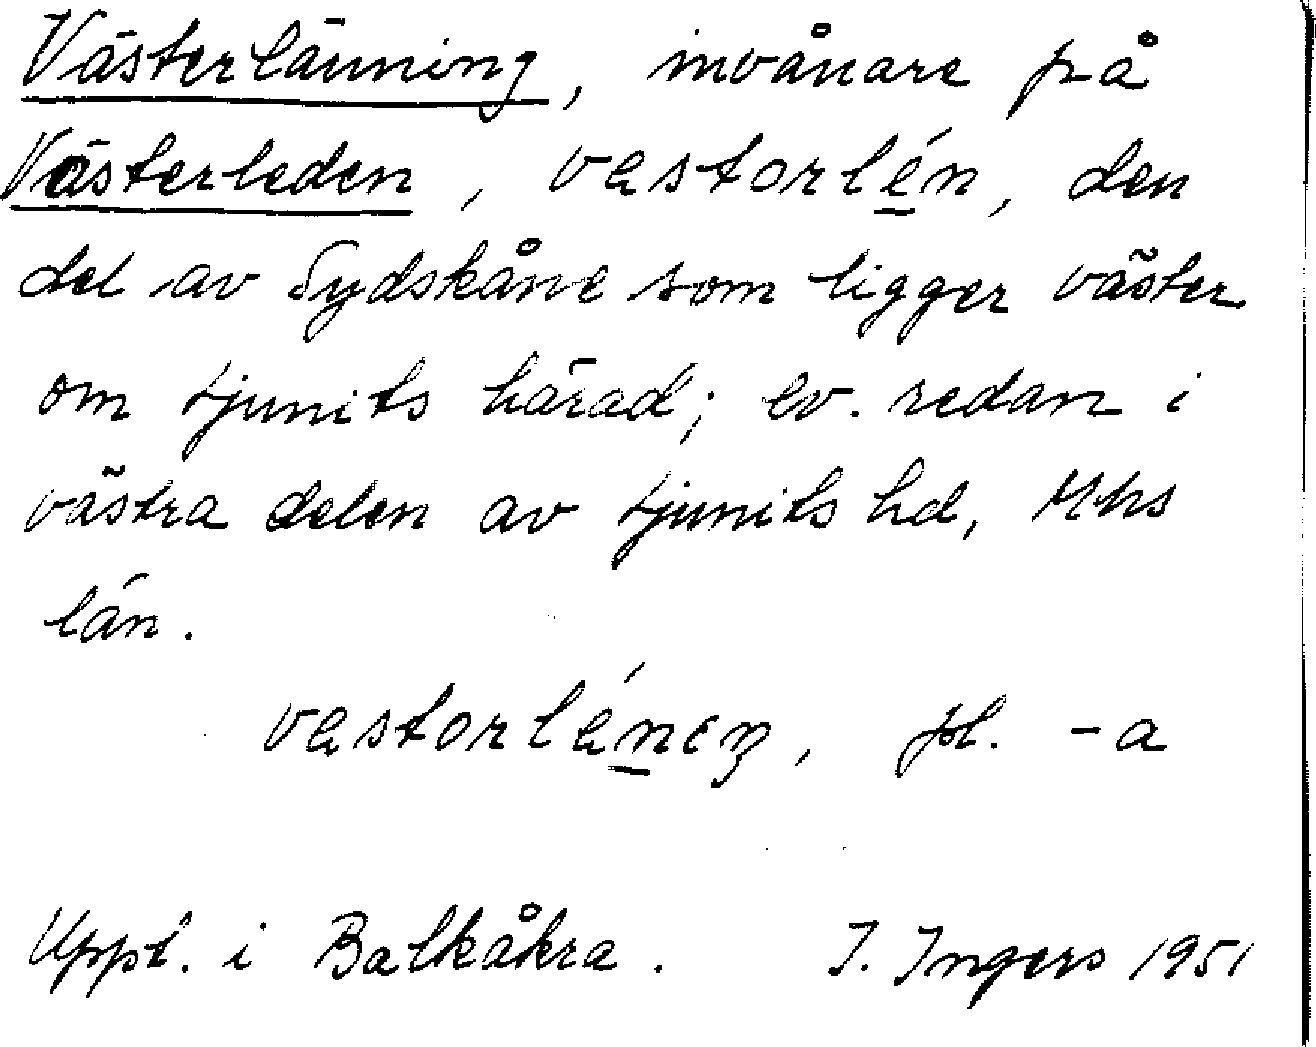 Västerlänning, invånare på
Västerleden, vastorlén, den
del av Sydskåne som ligger väster
om Ljunits härad; ev. redan i
västra delen av Ljunits hd, Mhs
län.
vastorlénɛŋ, pl. -a
Uppt. i Balkåkra. I. Ingers 1951